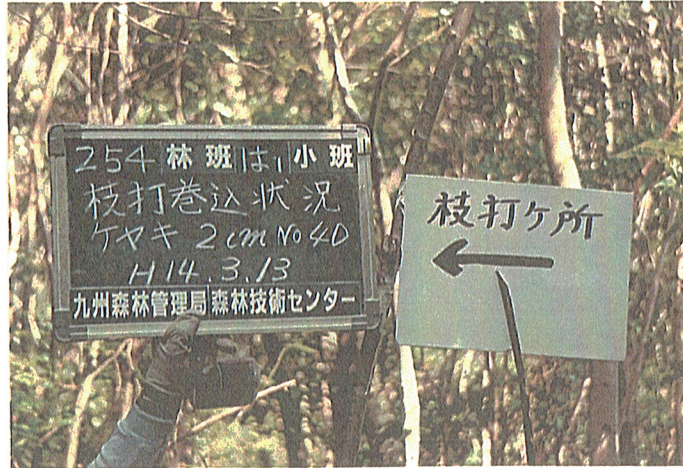 254 林班 は1 小班
枝打巻込状況
ケヤキ 2cm No 40
H14.3.13
九州森林管理局 森林技術センター
枝打ケ所
←